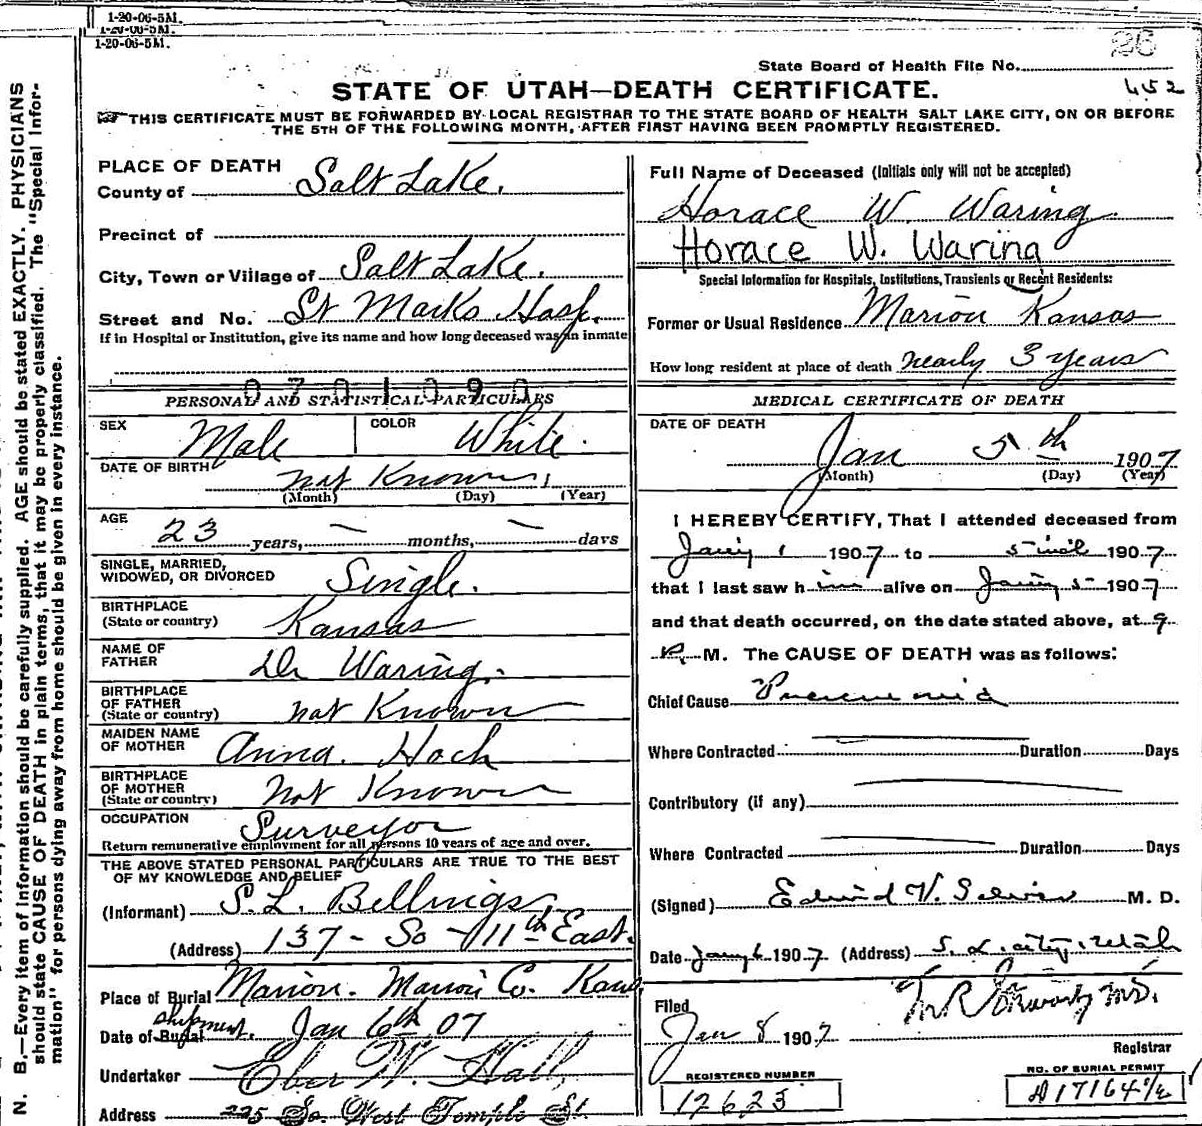 1-20-06-5M.
1-20-06-5M.
1-20-06-5M.
26
State Board of Health File No.
452
STATE OF UTAH—DEATH CERTIFICATE.
THIS CERTIFICATE MUST BE FORWARDED BY LOCAL REGISTRAR TO THE STATE BOARD OF HEALTH SALT LAKE CITY, ON OR BEFORE
THE 5TH OF THE FOLLOWING MONTH, AFTER FIRST HAVING BEEN PROMPTLY REGISTERED.
PLACE OF DEATH
County of Salt Lake.
Precinct of
City, Town or Village of Salt Lake.
Street and No. St Marks Hosp.
If in Hospital or Institution, give its name and how long deceased was an inmate
0701090
PERSONAL AND STATISTICAL PARTICULARS
SEX Male COLOR White.
DATE OF BIRTH not Known,
(Month) (Day) (Year)
AGE 23 years, — months, — days
SINGLE, MARRIED,
WIDOWED, OR DIVORCED Single.
BIRTHPLACE
(State or country) Kansas
NAME OF
FATHER Dr Waring.
BIRTHPLACE
OF FATHER
(State or country) not Known
MAIDEN NAME
OF MOTHER Anna. Hoch
BIRTHPLACE
OF MOTHER
(State or country) Not Known
OCCUPATION Surveyor
Return remunerative employment for all persons 10 years of age and over.
THE ABOVE STATED PERSONAL PARTICULARS ARE TRUE TO THE BEST
OF MY KNOWLEDGE AND BELIEF
(Informant) S. L. Bellnigs
(Address) 137 - So - 11th East.
Place of Burial Marion. Marion Co. Kans
shipment.
Date of Burial Jan 6th 07
Undertaker Eber W. Hall
Address 225 So. West Temple St.
Full Name of Deceased (Initials only will not be accepted)
Horace W. Waring
Horace W. Waring
Special Information for Hospitals, Institutions, Transients or Recent Residents:
Former or Usual Residence Marion Kansas
How long resident at place of death nearly 3 years
MEDICAL CERTIFICATE OF DEATH
DATE OF DEATH
Jan 5th 1907
(Month) (Day) (Year)
I HEREBY CERTIFY, That I attended deceased from
1 1907 to 5 1907
that I last saw him alive on 5 1907
and that death occurred, on the date stated above, at 9
P. M. The CAUSE OF DEATH was as follows:
Chief Cause Pneumonia
Where Contracted Duration Days
Contributory (if any)
Where Contracted Duration Days
(Signed) M. D.
Date 6 1907 (Address) S. L. City, Utah
Filed
Jan 8 1907
Registrar
REGISTERED NUMBER
12623
NO. OF BURIAL PERMIT
N. B.—Every item of information should be carefully supplied. AGE should be stated EXACTLY. PHYSICIANS
should state CAUSE OF DEATH in plain terms, that it may be properly classified. The "Special Infor-
mation" for persons dying away from home should be given in every instance.